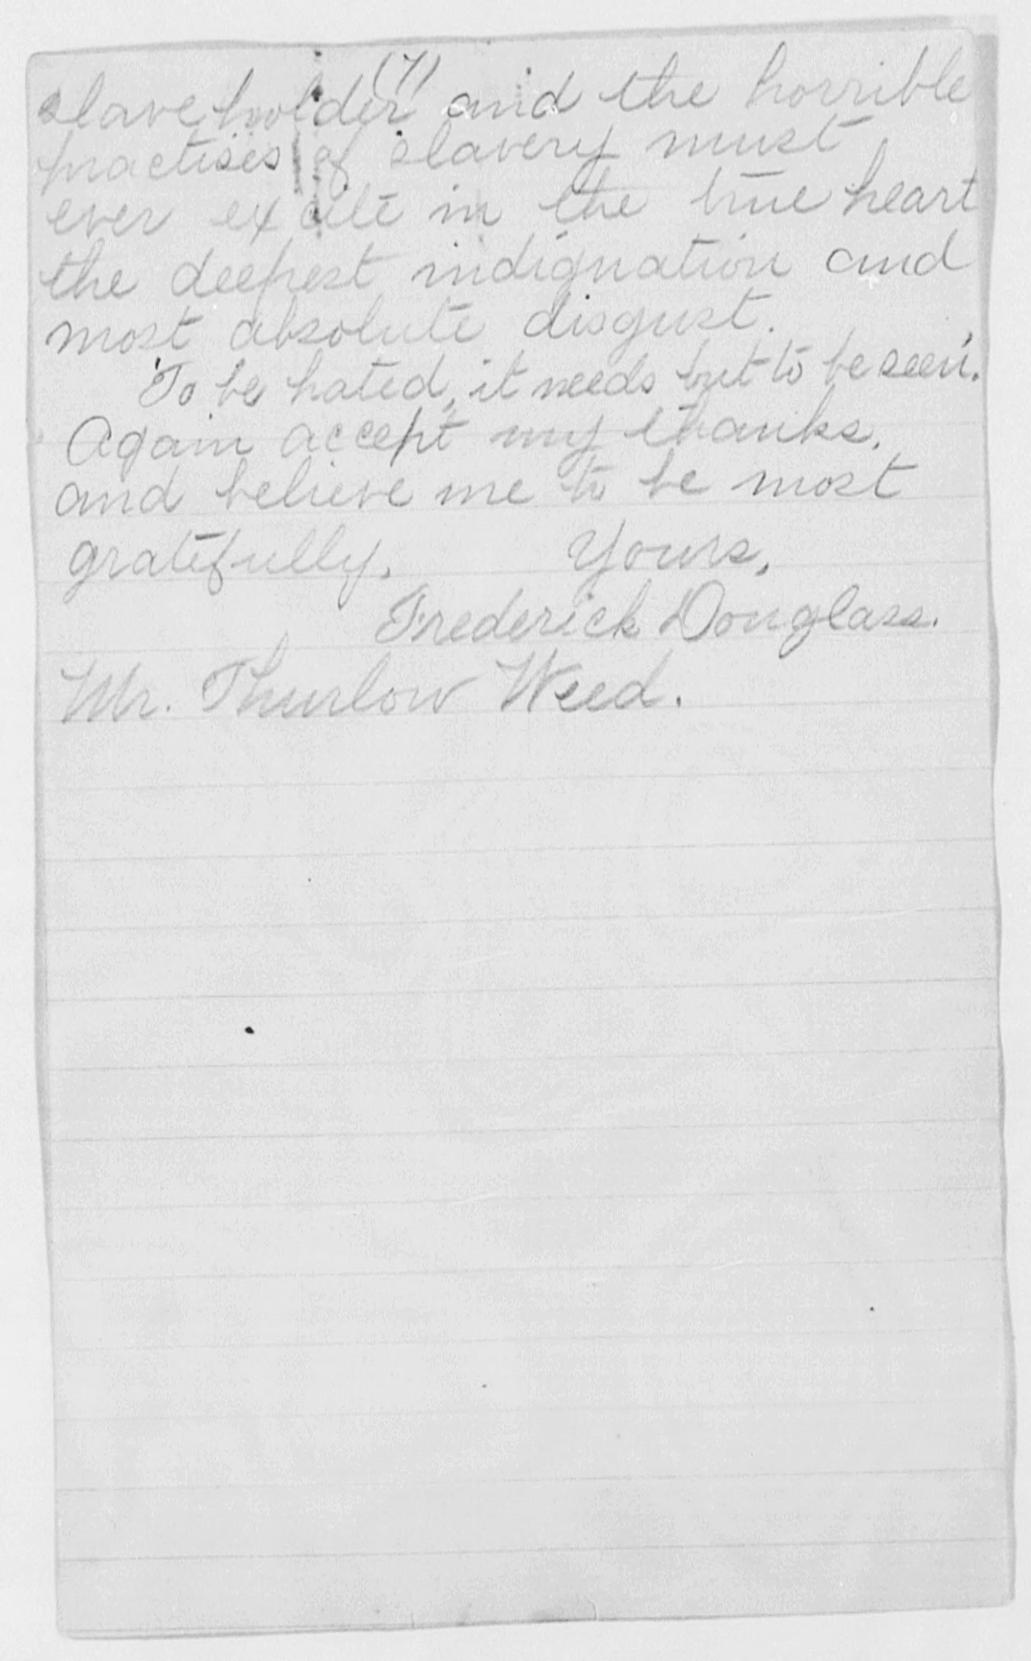 (7)
slaveholder and the horrible
practises of slavery must
ever excite in the true heart
the deepest indignation and
most absolute disgust.
"To be hated, it needs but to be seen".
Again accept my thanks,
and believe me to be most
gratefully, Yours,
Frederick Douglass.
Mr. Thurlow Weed.